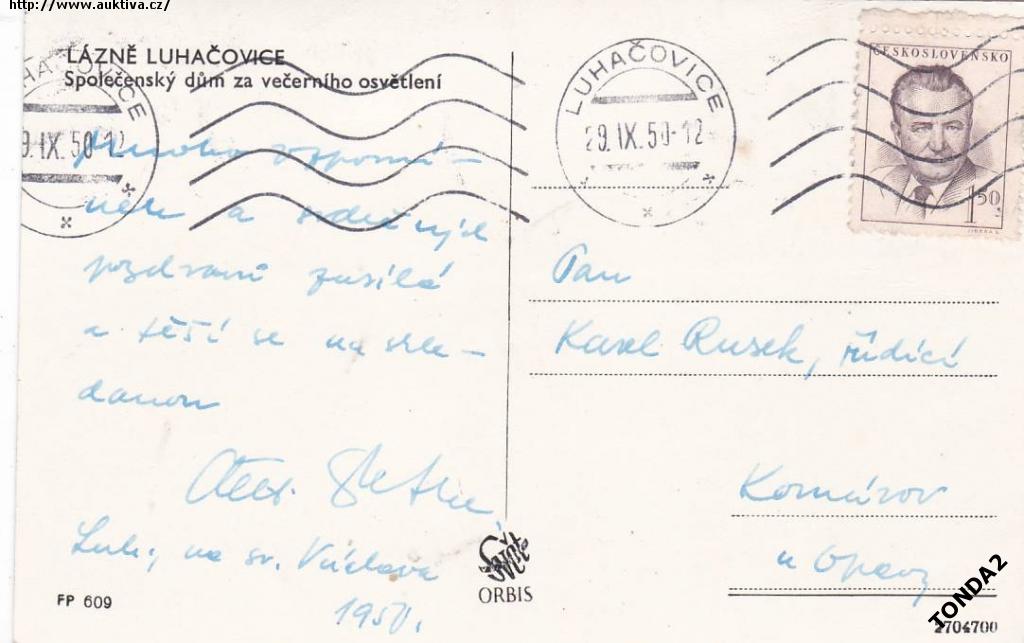 http://www.auktiva.cz/
LÁZNĚ LUHAČOVICE
Společenský dům za večerního osvětlení
LUHAČOVICE
9.IX.50-12
LUHAČOVICE
29.IX.50-12
ČESKOSLOVENSKO
1 50
Mnoho vzpomí-
nek a srdečných
pozdravů zasílá
a těší se na shle-
danou
Luh., na sv. Václava
1950.
Pan
Karel Rusek, řídící
Komárov
u Opavy
FP 609
ORBIS
TONDA2
4704700